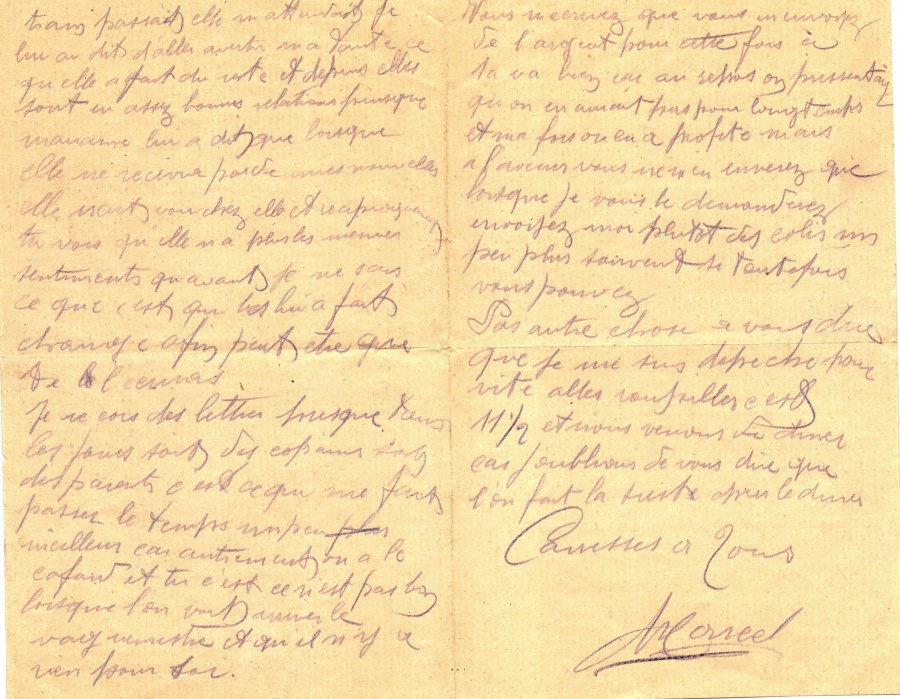 train passait elle m attendait je
lui ai dit d'aller avertir ma tante ce
qu elle a fait du reste et depuis elles
sont en assez bonnes relations puisque
lui a dit que lorsque
elle ne recevra pas de mes nouvelles
elle irait voir chez elle et reciproquement
tu vois qu elle n a plus les memes
sentiments qu avant je ne sais
ce que c est qui les lui a fait
changé afin peut etre que
te l ecrivas
Je recois des lettres presque tous
les jours soit des copains soit
des parents c est ce qui me fait
passer le temps un peu plus
meilleur car autrement on a le
cafard et tu c est ce n est pas bon
lorsque l'on voit arriver le
vaguemestre et qu il n y a
rien pour soi.
Vous m ecrivez que vous m envoyez
de l'argent pour cette fois ci
sa va bien car au repos on pressentait
qu on en aurait pas pour longtemps
et ma fois on en a profité mais
a l'avenir vous m en enverez que
lorsque je vous le demanderez
envoyez moi plutot des colis un
peu plus souvent si toutefois
vous pouvez
Pas autre chose a vous dire
que je me suis depeché pour
vite aller roupiller c est
11 1/2 et nous venons de diner
car j'oubliais de vous dire que
l'on fait la sieste apres le diner
Caresses a Tous
Marcel